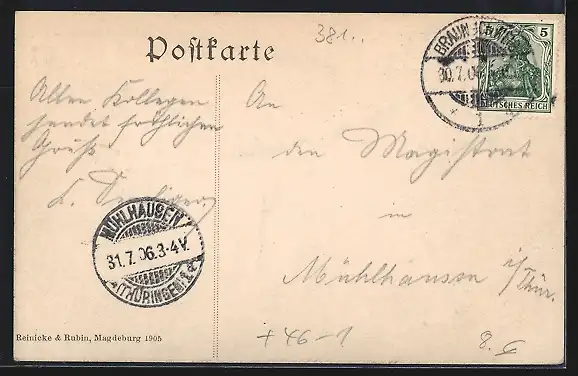 Postkarte
381..
BRAUNSCHWEIG
30.7.06
1
5
DEUTSCHES REICH
Allen Kollegen
sendet fröhlichen
Gruß
An
den Magistrat
in
Mühlhausen i/Thür.
MÜHLHAUSEN
31.7.06.3-4V.
(THÜRINGEN)
Reinicke & Rubin, Magdeburg 1905
+46-1